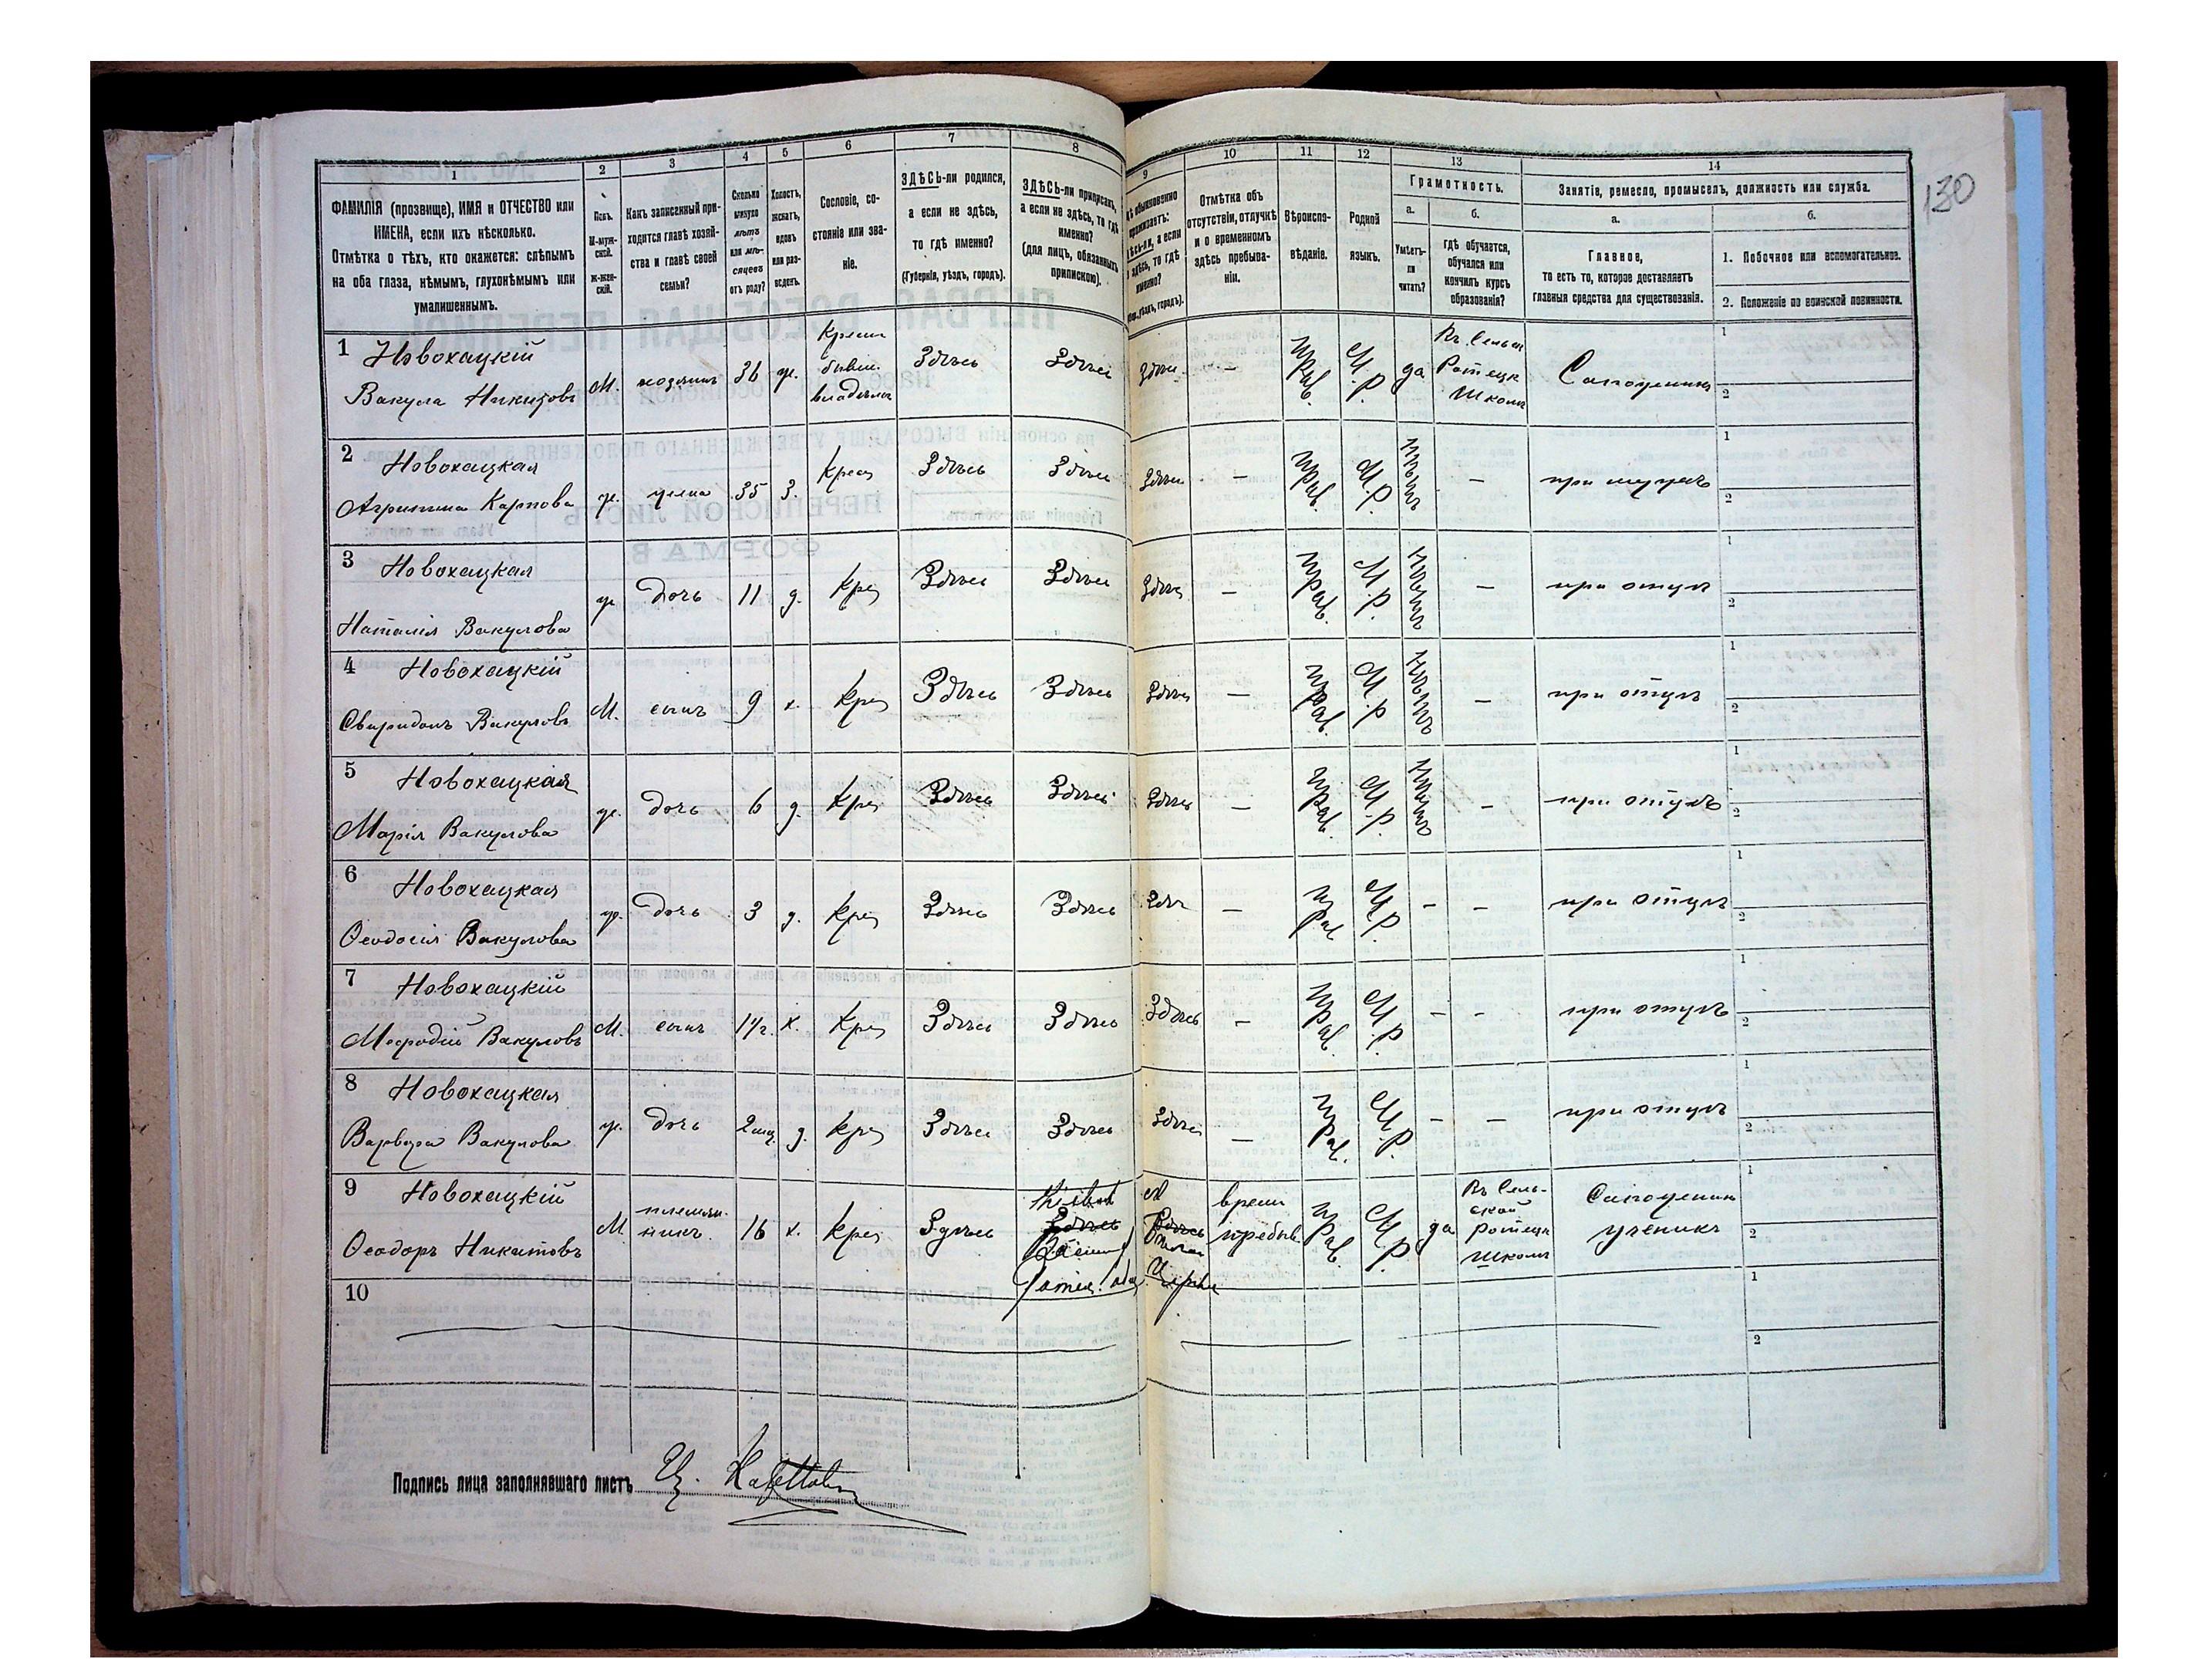 130
1
2
3
4
5
6
7
8
9
10
11
12
13
14
ФАМИЛІЯ (прозвище), ИМЯ и ОТЧЕСТВО или
ИМЕНА, если ихъ нѣсколько.
Отмѣтка о тѣхъ, кто окажется: слѣпымъ
на оба глаза, нѣмымъ, глухонѣмымъ или
умалишеннымъ.
Полъ.
М-муж-
ской.
Ж-жен-
скій.
Какъ записанный при-
ходится главѣ хозяй-
ства и главѣ своей
семьи?
Сколько
минуло
лѣтъ
или мѣ-
сяцевъ
отъ роду?
Холостъ,
женатъ,
вдовъ
или раз-
веденъ.
Сословіе, со-
стояніе или зва-
ніе.
ЗДѢСЬ-ли родился,
а если не здѣсь,
то гдѣ именно?
(Губернія, уѣздъ, городъ).
ЗДѢСЬ-ли приписанъ,
а если не здѣсь, то гдѣ
именно?
(для лицъ, обязанныхъ
припискою).
обыкновенно
проживаетъ:
а если
здѣсь, то гдѣ
именно?
уѣздъ, городъ).
Отмѣтка объ
отсутствіи, отлучкѣ
и о временномъ
здѣсь пребыва-
ніи.
Вѣроиспо-
вѣданіе.
Родной
языкъ.
Грамотность.
а.
б.
Умѣетъ-
ли
читать?
гдѣ обучается,
обучался или
кончилъ курсъ
образованія?
Занятіе, ремесло, промыселъ, должность или служба.
а.
б.
Главное,
то есть то, которое доставляетъ
главныя средства для существованія.
1. Побочное или вспомогательное.
2. Положеніе по воинской повинности.
1 Новохацкій
Вакула Никитовъ М. хозяинъ 36 ж. Крест бывш. владѣльч Здѣсь Здѣсь Здѣсь - прав. М.Р. да Въ Сельск Школѣ Сапожникъ
2 Новохацкая
Агрипина Карпова ж. жена 35 з. Крест Здѣсь Здѣсь Здѣсь - прав. М.Р. - при мужѣ
3 Новохацкая
Наталія Вакулова ж дочь 11 д. Крес Здѣсь Здѣсь Здѣсь - прав. М.Р. - при отцѣ
4 Новохацкій
Свиридонъ Вакуловъ М. сынъ 9 х. Крес Здѣсь Здѣсь Здѣсь - прав. М.Р - при отцѣ
5 Новохацкая
Марія Вакулова ж. дочь 6 д. Крес Здѣсь Здѣсь Здѣсь - прав. М.Р. - при отцѣ
6 Новохацкая
Ѳеодосія Вакулова ж. дочь 3 д. Крес Здѣсь Здѣсь - прав М.Р. - - при отцѣ
7 Новохацкій
Меѳодій Вакуловъ М. сынъ 1 1/2 х. Крес Здѣсь Здѣсь Здѣсь - прав. М.Р. - - при отцѣ
8 Новохацкая
Варвара Вакулова ж. дочь 2 мѣс. д. Крес Здѣсь Здѣсь Здѣсь - прав. М.Р. - - при отцѣ
9 Новохацкій
Ѳеодоръ Никитовъ М. племян-
никъ 16 х. Крес Здѣсь Здѣсь Здѣсь врем пребыв. прав. М.Р. да Въ Сель-
ской школѣ Сапожник ученикъ
10
Подпись лица заполнявшаго листъ